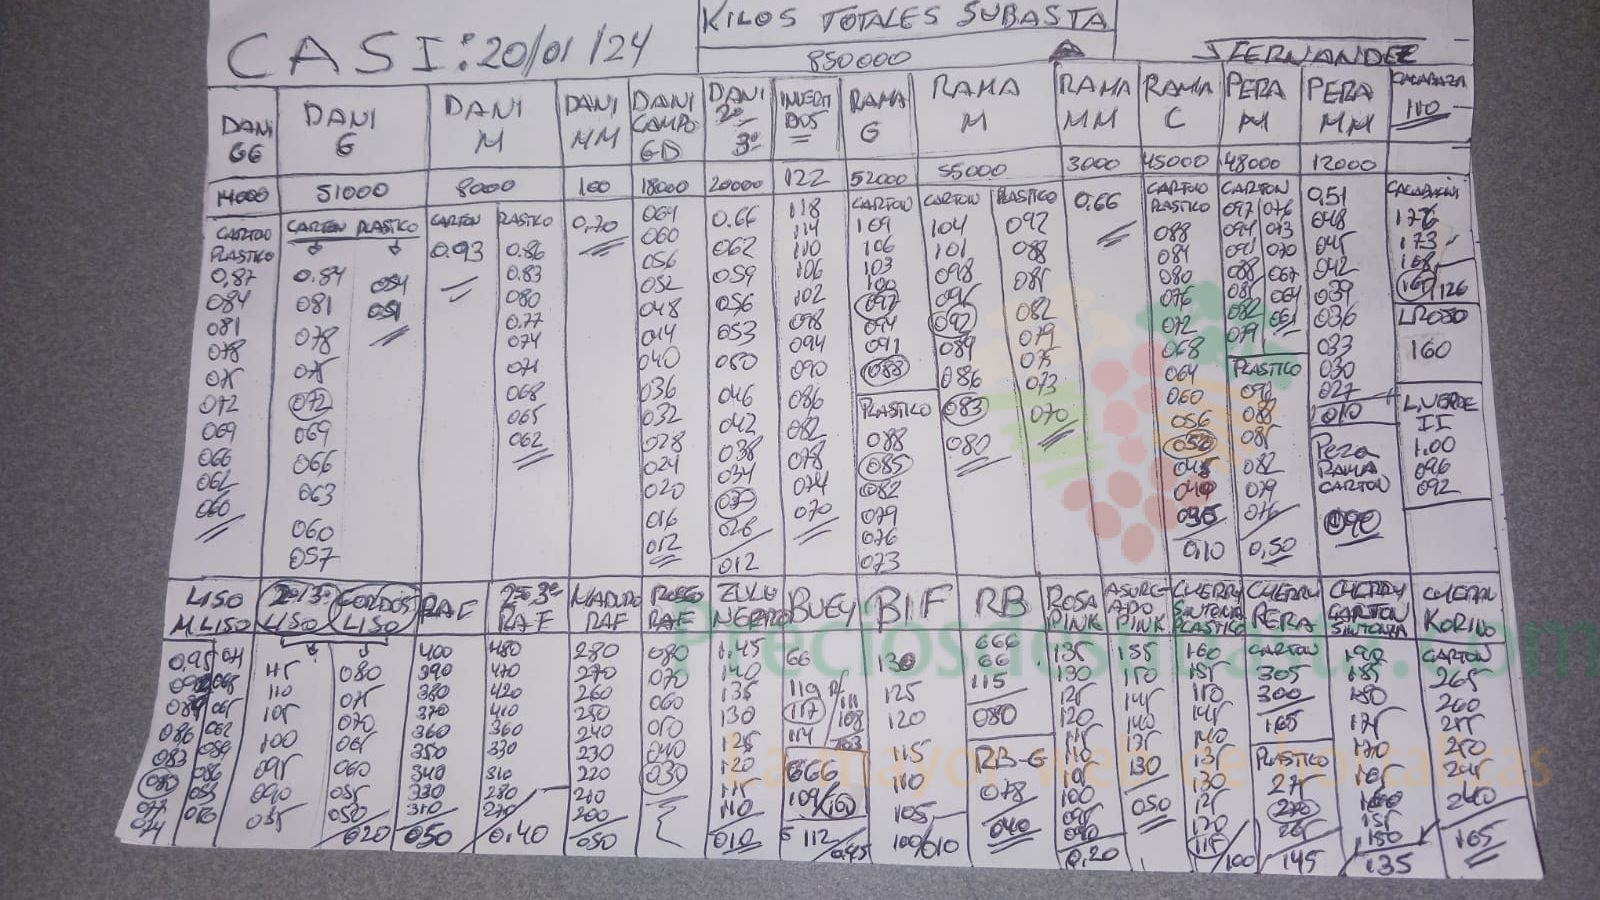 KILOS TOTALES SUBASTA
CASI: 20/01/24
850000
J FERNANDEZ
DANI GG
DANI G
DANI M
DANI MM
DANI CAMPO GD
DANI 2º 3º
INVERTIDOS
RAMA G
RAMA M
RAMA MM
RAMA C
PERA M
PERA MM
CALABAZA 110
14000
51000
8000
100
18000
20000
122
52000
55000
3000
45000
48000
12000
CARTON PLASTICO
0,87
084
081
078
075
072
069
066
062
060
CARTON
0.84
081
078
075
072
069
066
063
060
057
PLASTICO
054
051
CARTON
0.93
PLASTICO
0.86
0.83
080
0.77
074
071
068
065
062
0,70
064
060
056
052
048
044
040
036
032
028
024
020
016
012
0.66
062
059
056
053
050
046
042
038
034
030
026
012
118
114
110
106
102
098
094
090
086
082
078
074
070
CARTON
109
106
103
100
097
094
091
088
PLASTICO
088
085
082
079
076
073
CARTON
104
101
098
095
092
089
086
083
080
PLASTICO
092
088
085
082
079
075
073
070
0.66
CARTON PLASTICO
088
084
080
076
072
068
064
060
056
050
045
040
035
0,10
CARTON
097 076
094 073
091 070
088 067
085 064
082 061
079
PLASTICO
091
088
085
082
079
076
0,50
0,51
048
045
042
039
036
033
030
027
010
Pera RAMA CARTON
090
176
173
168
126
160
L.VERDE II
1.00
096
092
LISO M.LISO
2º 3º LISO
GORDOS LISO
RAF
2º 3º RAF
MADURO RAF
ROSSO RAF
ZULU NEGRO
BUEY
BIF
RB
ROSA PINK
ASURCADO PINK
CHERRY SINTONIA PLASTICO
CHERRY PERA
CHERRY CARTON SINTONIA
CHERRY KORINO
0,95
086
083
080
077
074
115
110
105
100
095
090
085
080
075
070
065
060
055
050
020
400
390
380
370
360
350
340
330
310
050
480
470
420
410
360
330
310
280
270
0,40
280
270
260
250
240
230
220
210
200
050
080
070
060
050
040
030
1.45
140
135
130
125
120
115
110
010
66
119
117
114
111
108
103
666
109/100
112
0,45
130
125
120
115
110
105
100/010
666
66
115
080
RB-G
078
040
135
130
125
120
115
110
105
100
095
090
0,20
155
150
145
140
135
130
050
160
155
150
145
140
135
130
125
120
115
100
CARTON
305
300
165
PLASTICO
275
270
265
145
190
185
180
175
170
165
160
155
150
135
CARTON
265
260
255
250
245
240
165
Preciosdesubasta.com
La mayor web de hortalizas